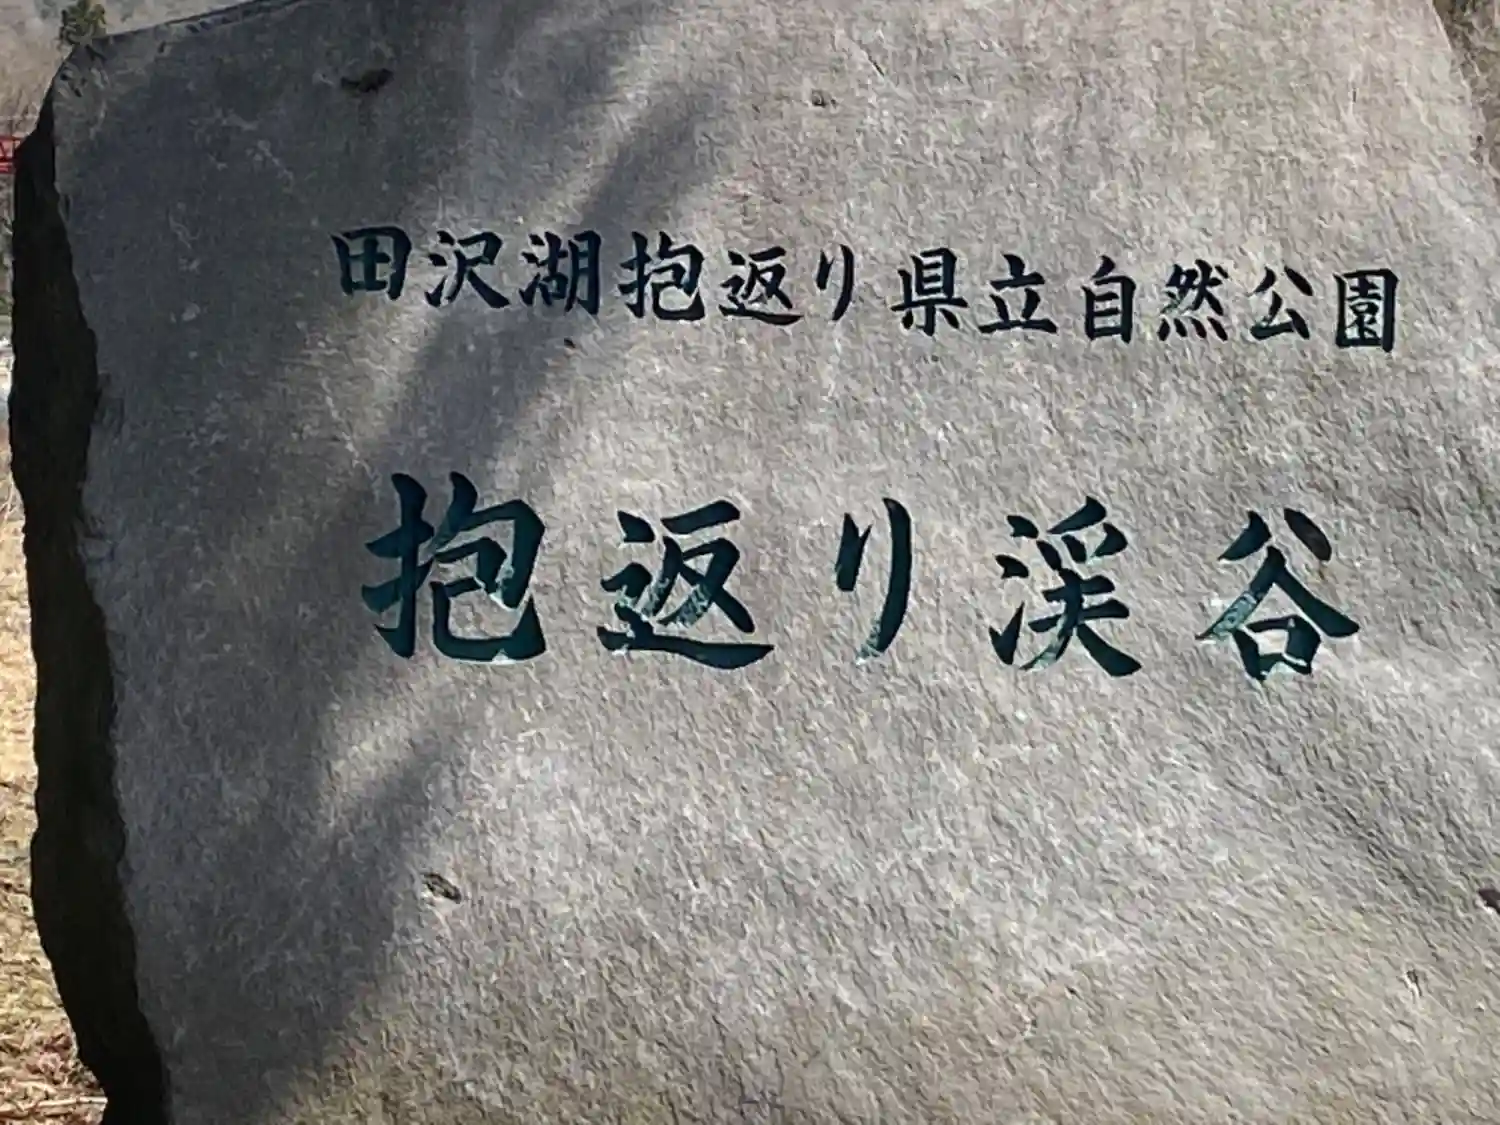 田沢湖抱返り県立自然公園
抱返り渓谷